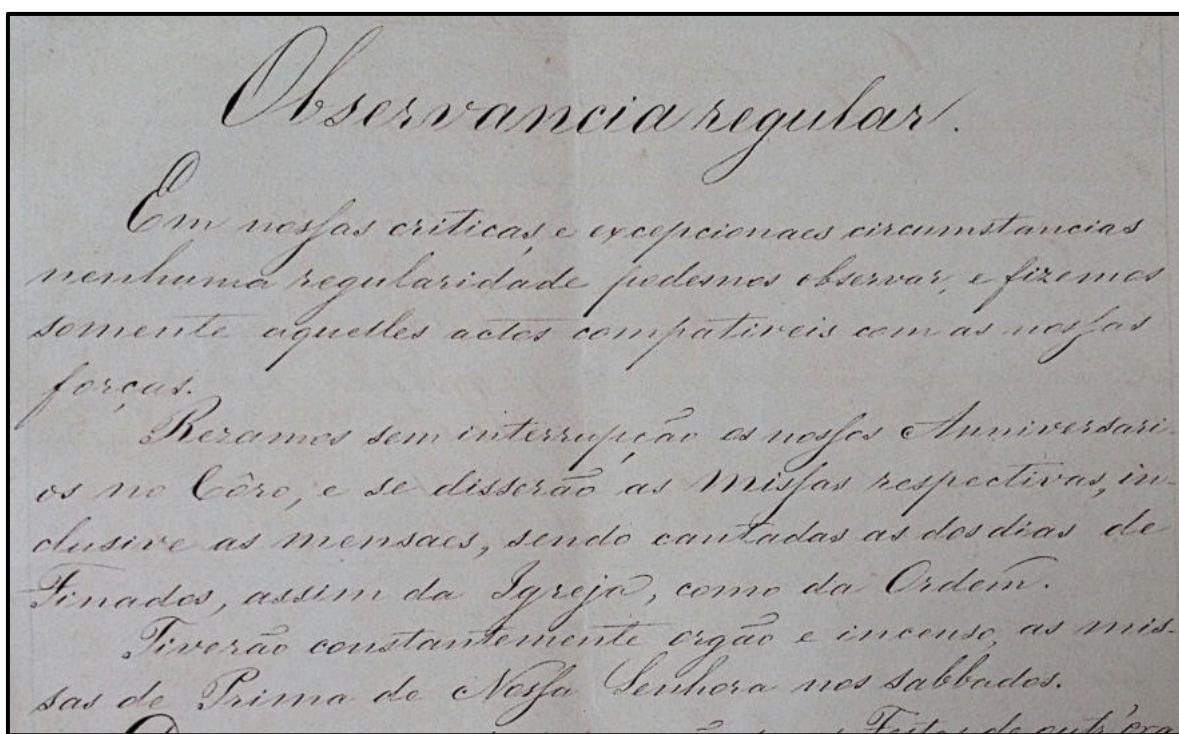 Observancia regular.
Em nossas criticas, e excepcionaes circumstancias
nenhuma regularidade podemos observar, e fizemos
somente aquelles actos compativeis com as nossas
forças.
Rezamos sem interrupção os nossos Anniversari-
os no Côro, e se disserão as missas respectivas, in-
clusive as mensaes, sendo cantadas as dos dias de
Finados, assim da Igreja, como da Ordem.
Tiverão constantemente orgão e incenso, as mis-
sas de Prima de Nossa Senhora nos sabbados.
Festas de outr'ora